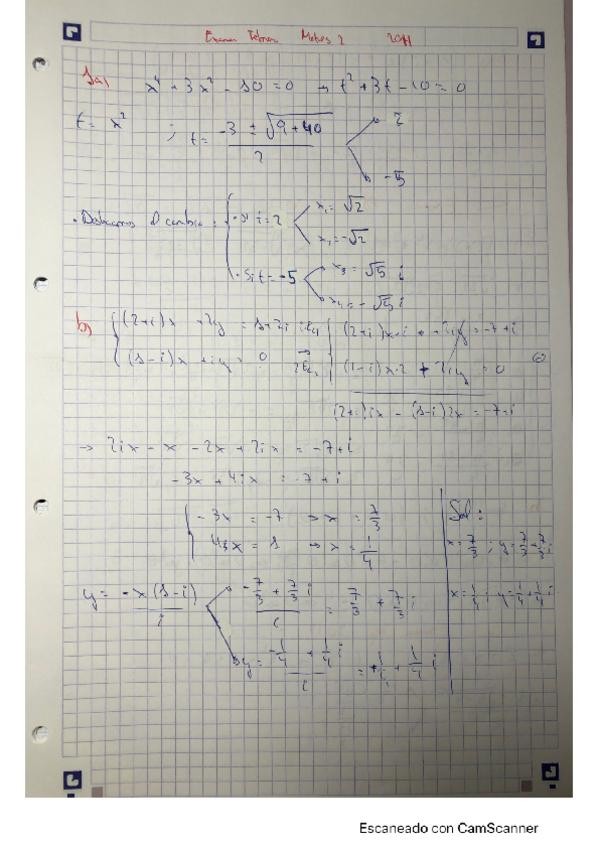 Examen Febrero Mates 2 2011
1a) x⁴ + 3x² - 10 = 0 → t² + 3t - 10 = 0
t = x² ; t = (-3 ± √(9 + 40)) / 2
2
-5
· Deshacemos el cambio:
· si t = 2
x₁ = √2
x₂ = -√2
· si t = -5
x₃ = √5 i
x₄ = - √5 i
b) (2+i)x + 2y = 1 + 7i
(1-i)x + iy = 0
(2+i)x·i + 2iy = -7 + i
(1-i)x·2 + 2iy = 0
(2+i)ix - (1-i)2x = -7+i
→ 2ix - x - 2x + 2ix = -7+i
-3x + 4ix = -7 + i
-3x = -7 → x = 7/3
4x = 1 → x = 1/4
Sol:
x = 7/3 ; y = 7/3 + 7/3 i
x = 1/4 ; y = 1/4 + 1/4 i
y = -x(1-i) / i
(-7/3 + 7/3 i) / i = 7/3 + 7/3 i
y = (-1/4 + 1/4 i) / i = 1/4 + 1/4 i
Escaneado con CamScanner